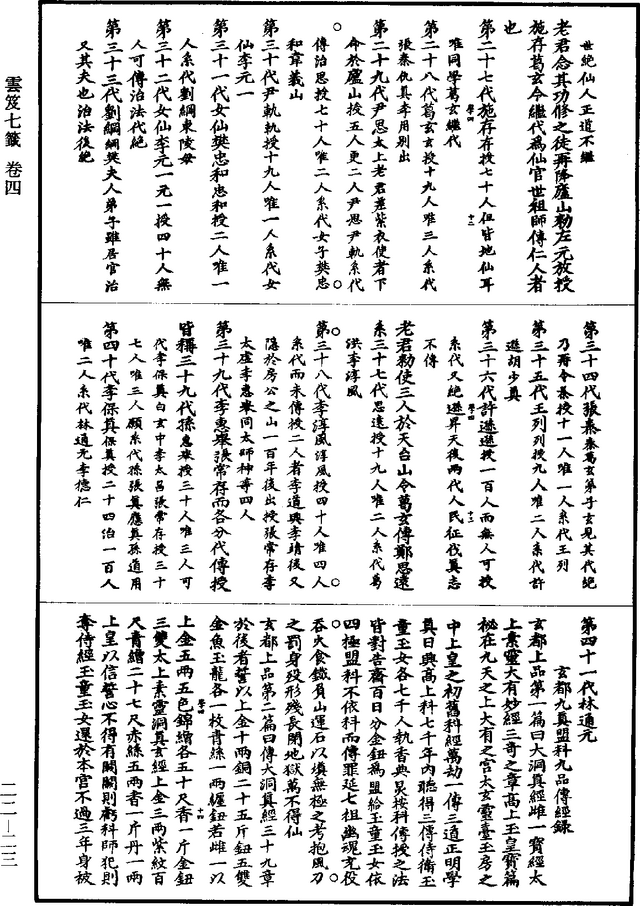 世絶仙人正道不繼
老君念其功修之徒再降廬山勑左元放授
施存葛玄令繼代爲仙官世祖師傳仁人者
也
第二十七代施存存授七十人但皆地仙耳
唯同學葛玄繼代
第二十八代葛玄玄授十九人唯三人系代
張泰仇真李用別出
第二十九代尹思太上老君差紫衣使者下
命於廬山授五人更二人尹思尹軌系代
傳治思授七十人唯二人系代女子樊忠
和韋義山
第三十代尹軌軌授十九人唯一人系代女
仙李元一
第三十一代女仙樊忠和忠和授二人唯一
人系代劉綱東陵母
第三十二代女仙李元一元一授四十人無
人可傳治法代絶
第三十三代劉綱綱樊夫人弟子雖居官治
又其夫也治法後絶
第三十四代張泰泰葛玄弟子玄見其代絶
乃再令泰授十一人唯一人系代王列
第三十五代王列列授九人唯二人系代許
遜胡少真
第三十六代許遜遜授一百人而無人可授
系代又絶遜昇天後兩代人民征伐真志
不傳
老君勑使三人於天台山令葛玄傳鄭思遠
系三十七代思遠授十九人唯二人系代葛
洪李淳風
第三十八代李淳風淳風授四十人唯四人
系代而未傳授二人者李道興李靖後又
隱於房公之山一百年後出授張常存李
太虛李惠舉同太師神奇四人
第三十九代李惠舉張常存而各分代傳授
皆稱三十九代孫惠舉授三十人唯三人可
代李保真白玄中李太昌張常存授三十
七人唯三人願系代孫張真應真孫道用
第四十代李保真保真授二十四治一百人
唯二人系代林通元李德仁
第四十一代林通元
玄都九真盟科九品傳經錄
玄都上品第一篇曰大洞真經雌一寳經太
上素靈大有妙經三奇之章高上玉皇寳篇
秘在九天之上大有之宮太玄靈臺玉房之
中上皇之初舊科經萬劫一傳三道正明學
真日興高上科七千年內聽得三傳侍衛玉
童玉女各七千人執香典灵按科傳授之法
皆對告齋百日分金鈕爲盟給玉童玉女依
四極盟科不依科而傳罪延七祖幽魂充役
吞火食鐵負山運石以塡無極之考抱風刀
之罰身歿形殘長閉地獄萬不得仙
玄都上品第二篇曰傳大洞真經三十九章
於後者誓以上金十兩銅二十五斤鈕五雙
金魚玉龍各一枚青絲一兩纒鈕若雌一以
上金五兩五色錦繒各五十尺香一斤金鈕
三雙太上素靈洞真玄經上金三兩紫紋百
尺青繒二十七尺赤絲五兩香一斤丹一兩
上皇以信誓心不得有闕闕則虧科師犯則
奪侍經玉童玉女還於本宮不過三年身被
雲笈七籤 卷四
二二—二三